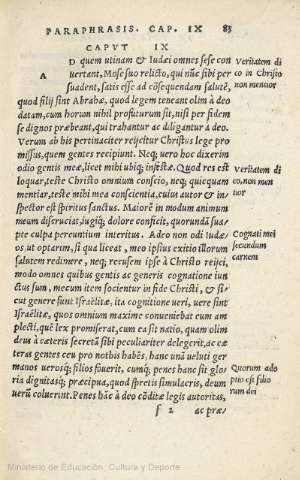 PARAPHRASIS. CAP. IX 85
CAPVT IX
Veritatem di
co in Christo
non mentior
A D quem utinam & Iudæi omnes sese con
uertant, Mose suo relicto, qui nũc sibi per
suadent, satis esse ad cõsequendam salutẽ,
quod filij sint Abrahæ, quod legem teneant olim à deo
datam, cum horum nihil profuturum sit, nisi per fidem
se dignos præbeant, qui trahantur ac diligantur à deo.
Verum ab his pertinaciter reijcitur Christus lege pro
missus, quem gentes recipiunt. Neq; uero hoc dixerim
odio gentis meæ, licet mihi ubiq; infestæ. Quod res est
Veritatem di
co, non men
tior
loquar, teste Christo omnium conscio, neq; quicquam
mentiar, teste mihi mea conscientia, cuius autor & in
spector est spiritus sanctus. Maiorẽ in modum animum
meum discruciat, iugiq; dolore conficit, quorundã sua
pte culpa pereuntium interitus. Adeo non odi Iudæ-
Cognati mei
secundum
carnem
os ut optarim, si qua liceat, meo ipsius exitio illorum
salutem redimere, neq; recusem ipse à Christo reijci,
modo omnes quibus gentis ac generis cognatione iun
ctus sum, mecum item socientur in fide Christi, & si-
cut genere sunt Israëlitæ, ita cognatione ueri, uere sint
Israëlitæ, quos omnium maxime conueniebat eum am
plecti, quẽ lex promiserat, cum ea sit natio, quam olim
deus à cæteris secretã sibi peculiariter delegerit, ac cæ
teras gentes ceu pro nothis habẽs, hanc unã ueluti ger
manos uerosq; filios fouerit, cumq; penes hanc sit glo
Quorum ado
ptio est filio
rum dei
ria dignitasq; præcipua, quod spretis simulacris, deum
uerũ coluerint. Penes hãc à deo cõditæ legis autoritas,
f 2 ac præ-
Ministerio de Educación, Cultura y Deporte